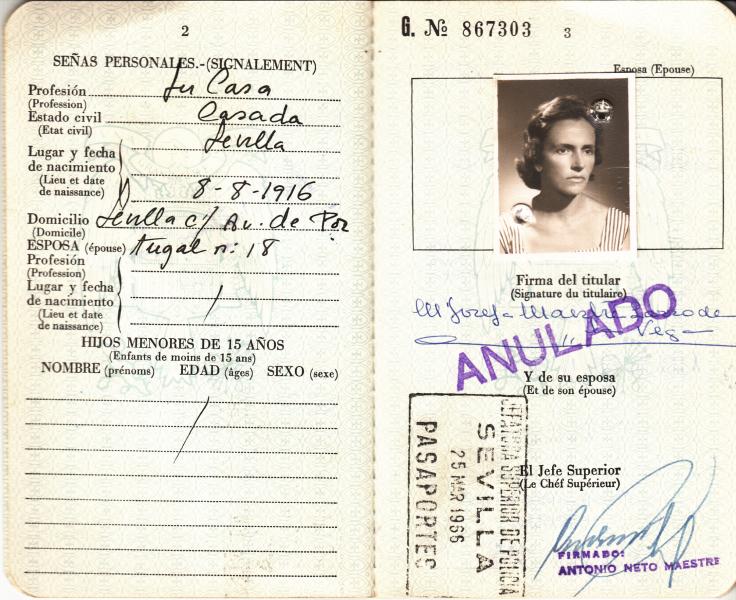 2
SEÑAS PERSONALES.-(SIGNALEMENT)
Profesión Su Casa
(Profession)
Estado civil Casada
(Etat civil)
Sevilla
Lugar y fecha
de nacimiento
(Lieu et date
de naissance)
8-8-1916
Domicilio Sevilla c/ Av. de Por
(Domicile)
ESPOSA (épouse) tugal nº: 18
Profesión
(Profession)
Lugar y fecha
de nacimiento
(Lieu et date
de naissance)
HIJOS MENORES DE 15 AÑOS
(Enfants de moins de 15 ans)
NOMBRE (prénoms) EDAD (âges) SEXO (sexe)
G. № 867303 3
Esposa (Epouse)
Firma del titular
(Signature du titulaire)
Mª Josefa Maestre Lasso de
la Vega
ANULADO
Y de su esposa
(Et de son épouse)
JEFATURA SUPERIOR DE POLICIA
SEVILLA
25 MAR 1966
PASAPORTES
El Jefe Superior
(Le Chéf Supérieur)
FIRMADO:
ANTONIO NETO MAESTRE